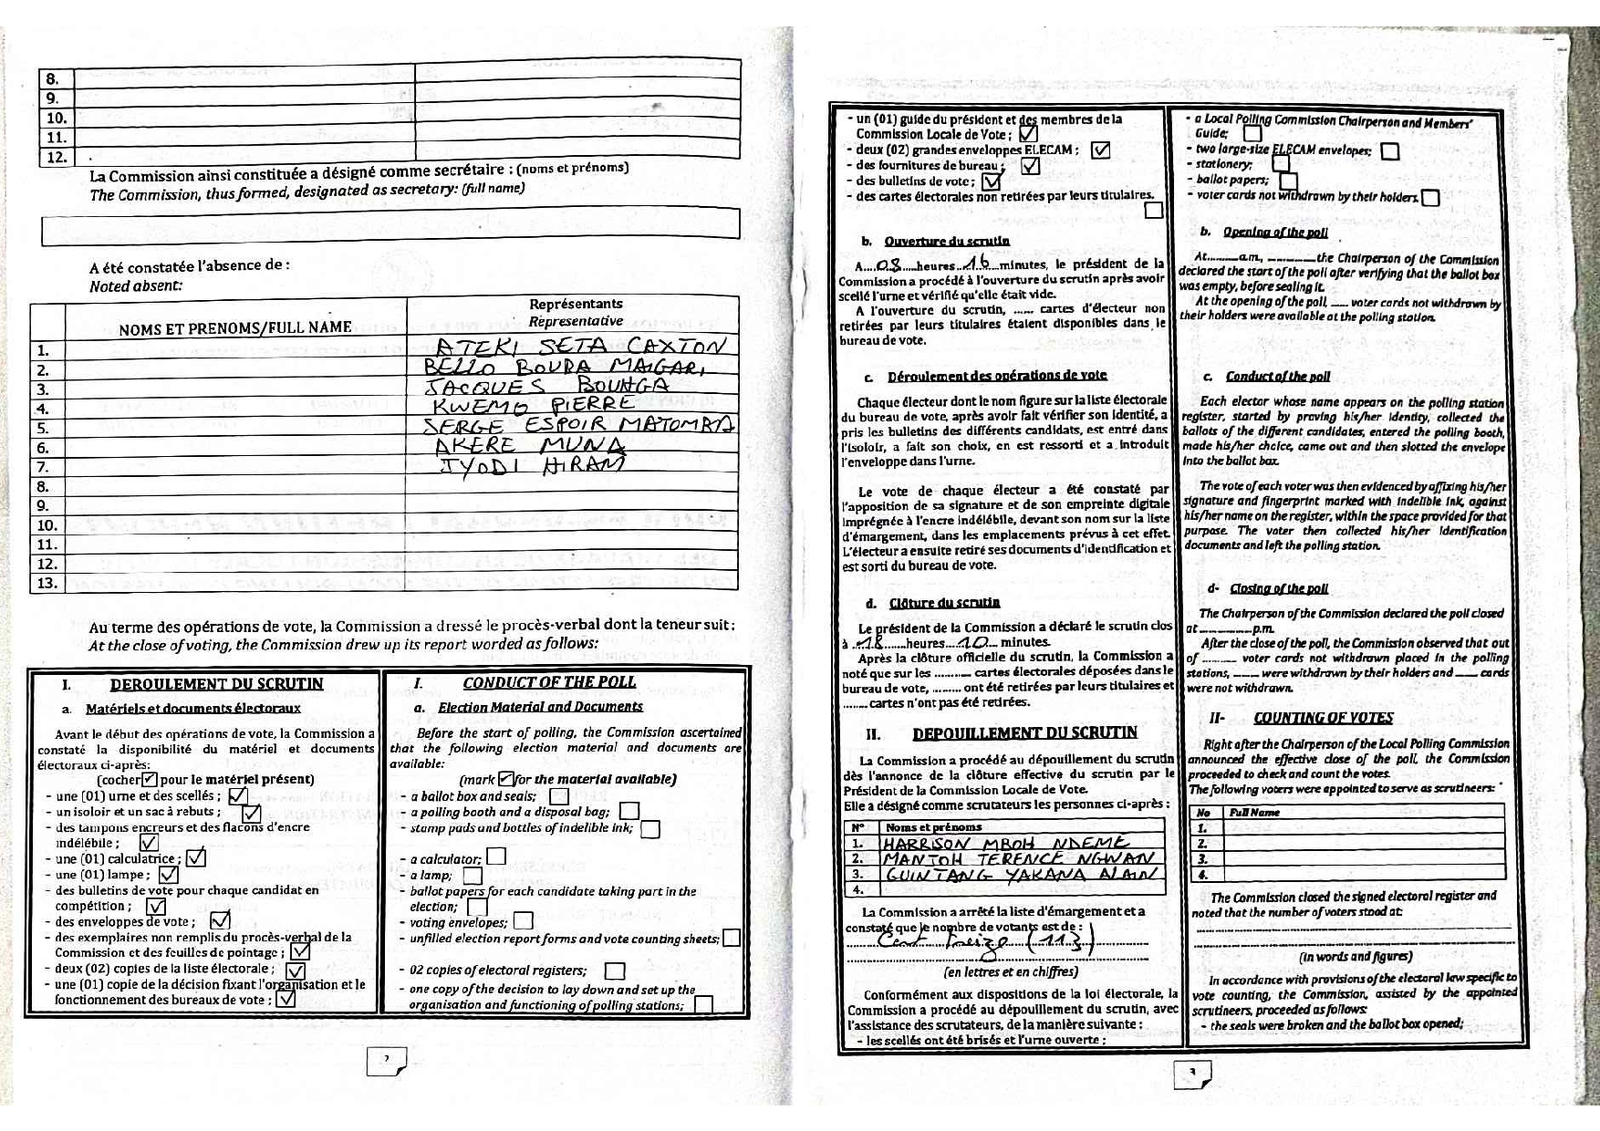 8.
9.
10.
11.
12.
La Commission ainsi constituée a désigné comme secrétaire : (noms et prénoms)
The Commission, thus formed, designated as secretary: (full name)
A été constatée l'absence de :
Noted absent:
NOMS ET PRENOMS/FULL NAME
Représentants
Representative
1. ATEKI SETA CAXTON
2. BELLO BOUBA MAIGARI
3. JACQUES BOUHGA
4. KWEMO PIERRE
5. SERGE ESPOIR MATOMBA
6. AKERE MUNA
7. IYODI HIRAM
8.
9.
10.
11.
12.
13.
Au terme des opérations de vote, la Commission a dressé le procès-verbal dont la teneur suit :
At the close of voting, the Commission drew up its report worded as follows:
I. DEROULEMENT DU SCRUTIN
a. Matériels et documents électoraux
Avant le début des opérations de vote, la Commission a
constaté la disponibilité du matériel et documents
électoraux ci-après:
(cocher ☑ pour le matériel présent)
- une (01) urne et des scellés ; ☑
- un isoloir et un sac à rebuts ; ☑
- des tampons encreurs et des flacons d'encre
indélébile ; ☑
- une (01) calculatrice ; ☑
- une (01) lampe ; ☑
- des bulletins de vote pour chaque candidat en
compétition ; ☑
- des enveloppes de vote ; ☑
- des exemplaires non remplis du procès-verbal de la
Commission et des feuilles de pointage ; ☑
- deux (02) copies de la liste électorale ; ☑
- une (01) copie de la décision fixant l'organisation et le
fonctionnement des bureaux de vote ; ☑
I. CONDUCT OF THE POLL
a. Election Material and Documents
Before the start of polling, the Commission ascertained
that the following election material and documents are
available:
(mark ☑ for the material available)
- a ballot box and seals; ☐
- a polling booth and a disposal bag; ☐
- stamp pads and bottles of indelible ink; ☐
- a calculator; ☐
- a lamp; ☐
- ballot papers for each candidate taking part in the
election; ☐
- voting envelopes; ☐
- unfilled election report forms and vote counting sheets; ☐
- 02 copies of electoral registers; ☐
- one copy of the decision to lay down and set up the
organisation and functioning of polling stations; ☐
2
- un (01) guide du président et des membres de la
Commission Locale de Vote ; ☑
- deux (02) grandes enveloppes ELECAM ; ☑
- des fournitures de bureau ; ☑
- des bulletins de vote ; ☑
- des cartes électorales non retirées par leurs titulaires.
☐
b. Ouverture du scrutin
A....08....heures..16..minutes, le président de la
Commission a procédé à l'ouverture du scrutin après avoir
scellé l'urne et vérifié qu'elle était vide.
A l'ouverture du scrutin, ...... cartes d'électeur non
retirées par leurs titulaires étaient disponibles dans le
bureau de vote.
c. Déroulement des opérations de vote
Chaque électeur dont le nom figure sur la liste électorale
du bureau de vote, après avoir fait vérifier son identité, a
pris les bulletins des différents candidats, est entré dans
l'isoloir, a fait son choix, en est ressorti et a introduit
l'enveloppe dans l'urne.
Le vote de chaque électeur a été constaté par
l'apposition de sa signature et de son empreinte digitale
imprégnée à l'encre indélébile, devant son nom sur la liste
d'émargement, dans les emplacements prévus à cet effet.
L'électeur a ensuite retiré ses documents d'identification et
est sorti du bureau de vote.
d. Clôture du scrutin
Le président de la Commission a déclaré le scrutin clos
à ..18......heures....10... minutes.
Après la clôture officielle du scrutin, la Commission a
noté que sur les .......... cartes électorales déposées dans le
bureau de vote, ........ ont été retirées par leurs titulaires et
....... cartes n'ont pas été retirées.
II. DEPOUILLEMENT DU SCRUTIN
La Commission a procédé au dépouillement du scrutin
dès l'annonce de la clôture effective du scrutin par le
Président de la Commission Locale de Vote.
Elle a désigné comme scrutateurs les personnes ci-après :
N° Noms et prénoms
1. HARRISON MBOH NDEME
2. MANTOH TERENCE NGWAN
3. GUINTANG YAKANA ALAIN
4.
La Commission a arrêté la liste d'émargement et a
constaté que le nombre de votants est de :
Cent treize (113)
(en lettres et en chiffres)
Conformément aux dispositions de la loi électorale, la
Commission a procédé au dépouillement du scrutin, avec
l'assistance des scrutateurs, de la manière suivante :
- les scellés ont été brisés et l'urne ouverte ;
- a Local Polling Commission Chairperson and Members'
Guide; ☐
- two large-size ELECAM envelopes; ☐
- stationery; ☐
- ballot papers; ☐
- voter cards not withdrawn by their holders ☐
b. Opening of the poll
At..........a.m, ............the Chairperson of the Commission
declared the start of the poll after verifying that the ballot box
was empty, before sealing it.
At the opening of the poll, ..... voter cards not withdrawn by
their holders were available at the polling station.
c. Conduct of the poll
Each elector whose name appears on the polling station
register, started by proving his/her identity, collected the
ballots of the different candidates, entered the polling booth,
made his/her choice, came out and then slotted the envelope
into the ballot box.
The vote of each voter was then evidenced by affixing his/her
signature and fingerprint marked with indelible ink, against
his/her name on the register, within the space provided for that
purpose. The voter then collected his/her identification
documents and left the polling station.
d- Closing of the poll
The Chairperson of the Commission declared the poll closed
at ..............p.m.
After the close of the poll, the Commission observed that out
of .......... voter cards not withdrawn placed in the polling
stations, ....... were withdrawn by their holders and ...... cards
were not withdrawn.
II- COUNTING OF VOTES
Right after the Chairperson of the Local Polling Commission
announced the effective close of the poll, the Commission
proceeded to check and count the votes.
The following voters were appointed to serve as scrutineers:
No Full Name
1.
2.
3.
4.
The Commission closed the signed electoral register and
noted that the number of voters stood at:
(in words and figures)
In accordance with provisions of the electoral law specific to
vote counting, the Commission, assisted by the appointed
scrutineers, proceeded as follows:
- the seals were broken and the ballot box opened;
3